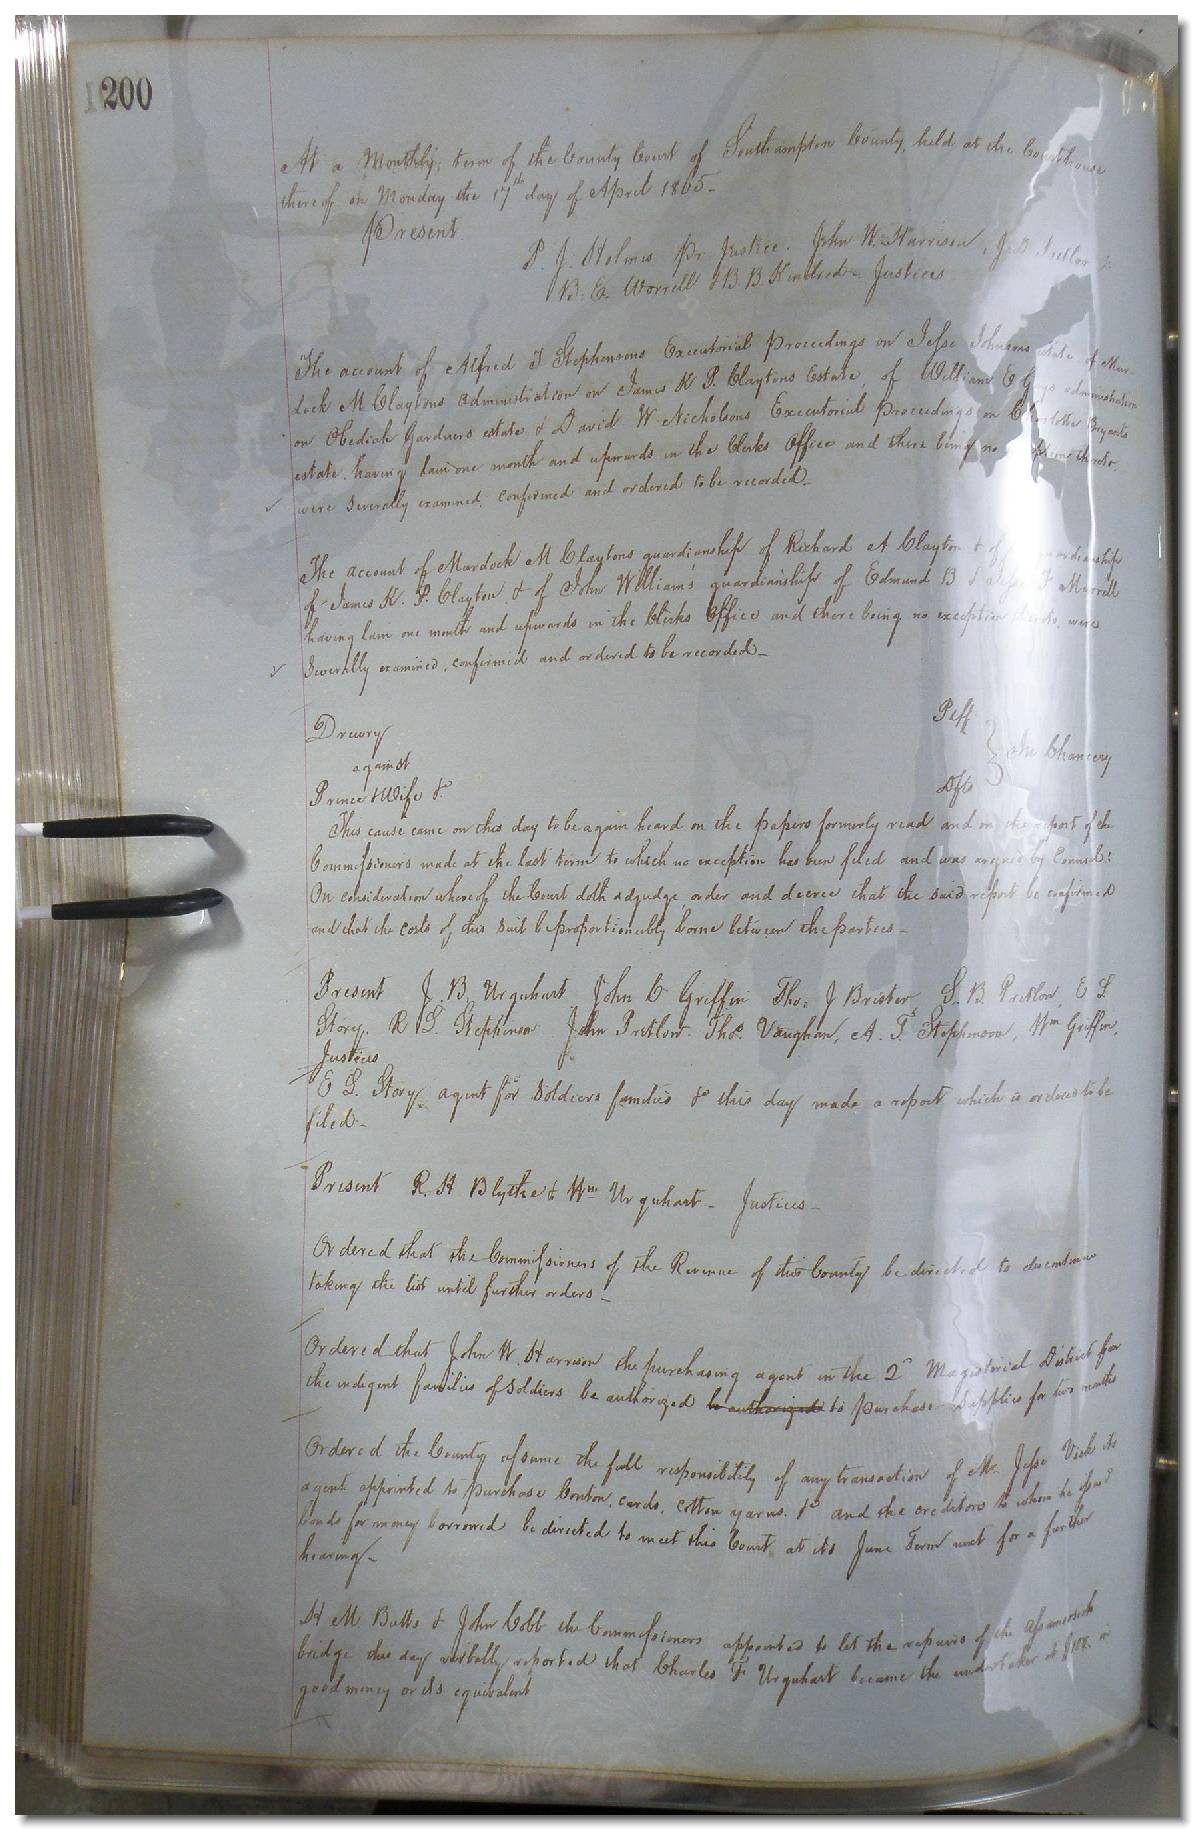 200
At a Monthly term of the County Court of Southampton County, held at the Courthouse
thereof on Monday the 17th day of April 1865-
Present
P. J. Holmes Pr Justice. John W. Harrison, J.
B. E. Worrell & B. B Kindred - Justices
The account of Alfred J Stephensons Executorial Proceedings on Jesse Johnsons estate of Mur-
dock M Claytons administration on James K P. Claytons Estate, of William E Grays administration
on Obediah Gardners estate & David W Nicholsons Executorial Proceedings on Charlotte Bryants
estate, having lain one month and upwards in the Clerks Office and there being no thereto,
were severally examined, confirmed and ordered to be recorded-
The account of Murdock M Claytons guardianship of Richard A Clayton & of guardianship
of James K. P. Clayton, & of John William's guardianship of Edmund B & Jesse F Murrell
having lain one month and upwards in the Clerks Office and there being no exception thereto, were
severally examined, confirmed and ordered to be recorded-
Drewry Plff
against In Chancery
Prince & Wife &c Dfts
This cause came on this day to be again heard on the papers formerly read and on the report of the
Commissioners made at the last term to which no exception has been filed and was argued by Counsel:
On consideration whereof the Court doth adjudge order and decree that the said report be confirmed
and that the costs of this suit be proportionably borne between the parties-
Present J. B. Urquhart John C Griffin Thos J Brister S. B. Pretlow, E S.
Story. R S. Stephenson John Pretlow. Thos Vaughan, A. T. Stephenson, Wm Griffin,
Justices
E S. Story, agent for soldiers families &c this day made a report which is ordered to be
filed-
Present R. H Blythe & Wm Urquhart- Justices-
Ordered that the Commissioners of the Revenue of this County be directed to discontinue
taking the list until further orders-
Ordered that John W. Harrison the purchasing agent in the 2d Magistorial District for
the indigent families of soldiers be authorized be authorized to purchase supplies for two months
Ordered the County assume the full responsibility of any transaction of Mr. Jesse Vick its
agent appointed to purchase Conton, cards, cotton yarns. &c and the creditors to whom he issued
bonds for money borrowed be directed to meet this Court at its June Term next for a further
hearing-
H M. Butts & John Cobb the Commissioners appointed to let the repairs of the Assamoosick
bridge this day verbally reported that Charles F Urquhart became the undertaker at in
good money or its equivalent